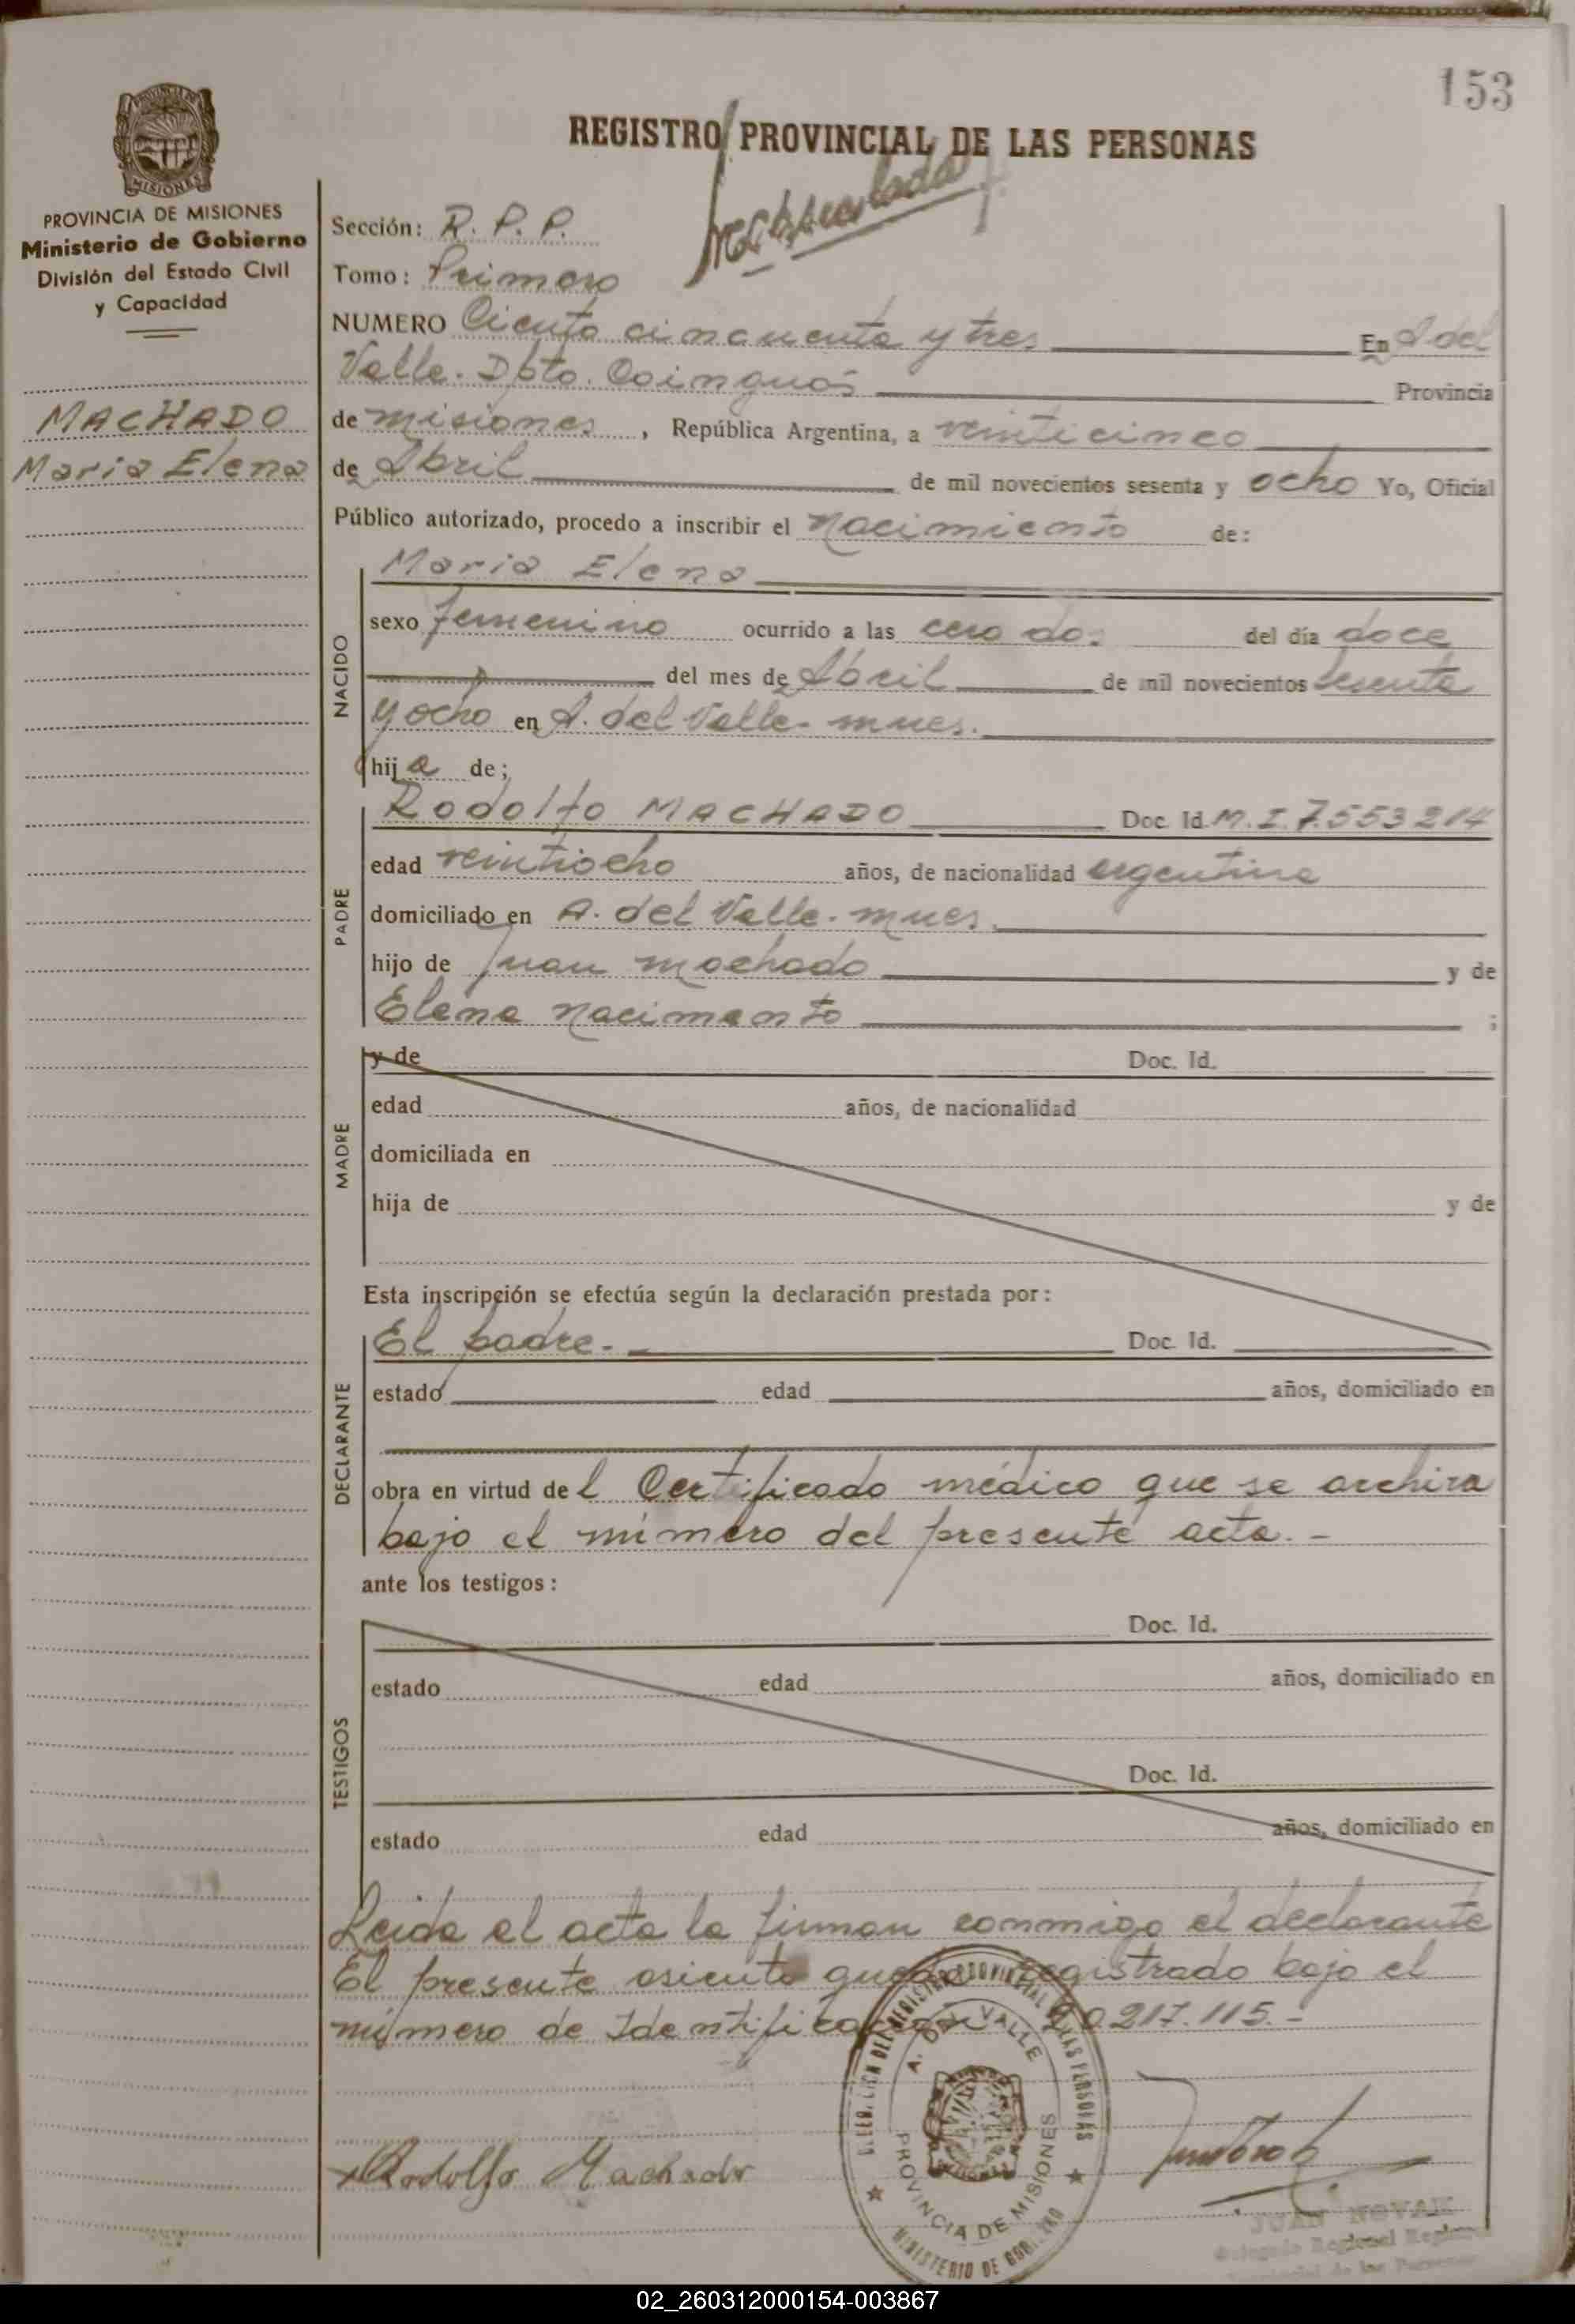 153
REGISTRO PROVINCIAL DE LAS PERSONAS
PROVINCIA DE MISIONES
Ministerio de Gobierno
División del Estado Civil
y Capacidad
MACHADO
Maria Elena
Sección: R. P. P.
Tomo: Primero
NUMERO Ciento cincuenta y tres En A del
Valle. Dpto. Cainguás Provincia
de misiones, República Argentina, a veinticinco
de Abril de mil novecientos sesenta y ocho Yo, Oficial
Público autorizado, procedo a inscribir el Nacimiento de:
NACIDO
Maria Elena
sexo femenino ocurrido a las cero dos del día doce
del mes de Abril de mil novecientos sesenta
y ocho en A. del Valle. mnes.
hija de;
PADRE
Rodolfo MACHADO Doc. Id. M. I. 7.553214
edad veintiocho años, de nacionalidad argentina
domiciliado en A. del Valle. mnes.
hijo de Juan machado y de
Elena Nacimento ;
MADRE
y de Doc. Id.
edad años, de nacionalidad
domiciliada en
hija de y de
Esta inscripción se efectúa según la declaración prestada por:
DECLARANTE
El padre. Doc. Id.
estado edad años, domiciliado en
obra en virtud del Certificado médico que se archiva
bajo el número del presente acta.-
ante los testigos:
TESTIGOS
Doc. Id.
estado edad años, domiciliado en
Doc. Id.
estado edad años, domiciliado en
Leida el acta la firman conmigo el declarante
El presente asiento queda registrado bajo el
número de Identificación 20217.115.-
Rodolfo Machado
A. DEL VALLE
PROVINCIA DE MISIONES
MINISTERIO DE GOBIERNO
JUAN NOVAK
02_260312000154-003867